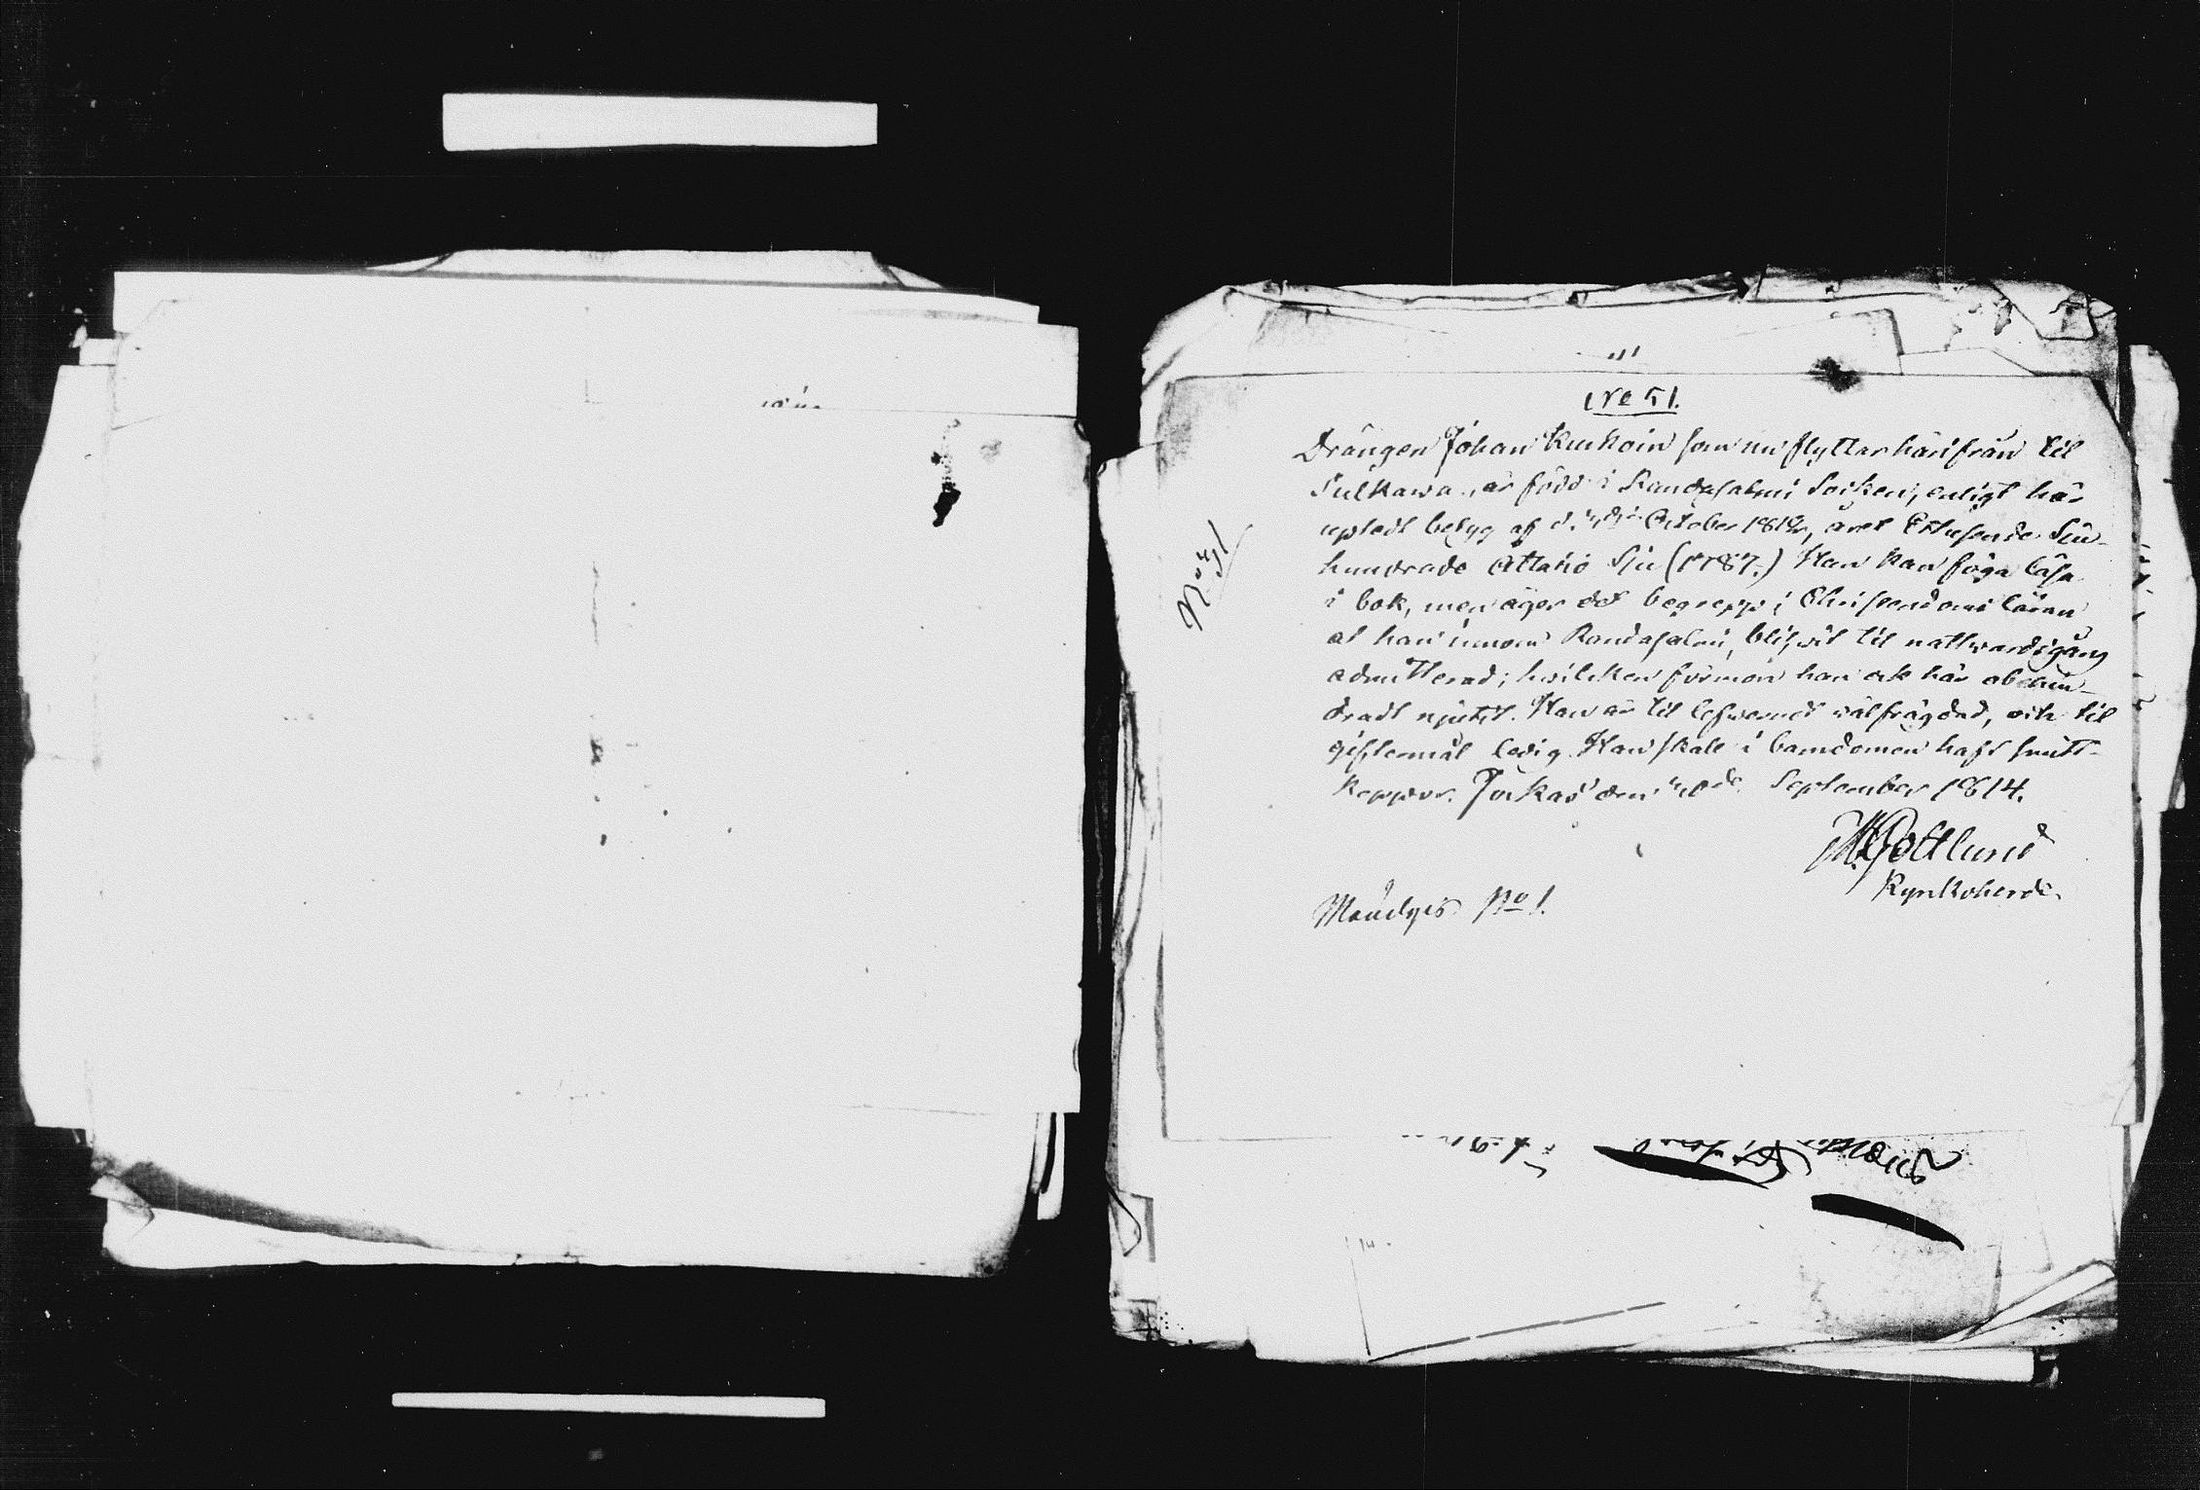 No 51.
No 51
Drängen Johan Kurkoin som nu flyttar härifrån til
Sulkawa, är född i Randasalmi Socken, enligt här
upledt betyg af d. October 1812, året Ettusende Sju-
hundrade Attatio Sju (1787.) Han kan föga läsa
i bok, men äger det begrepp i Christendoms läran
at han innom Randasalmi, blifwit til nattwardsgång
admitterad; hwilken förmon han ock här obehin-
dradt njutit. Han är til lefwernet wälfrägdad, och til
giftermål ledig. Han skall i barndomen haft smitt-
koppor. Jockas den September 1814.
MGottlund
Kyrkoherde
Mändyis No 1.